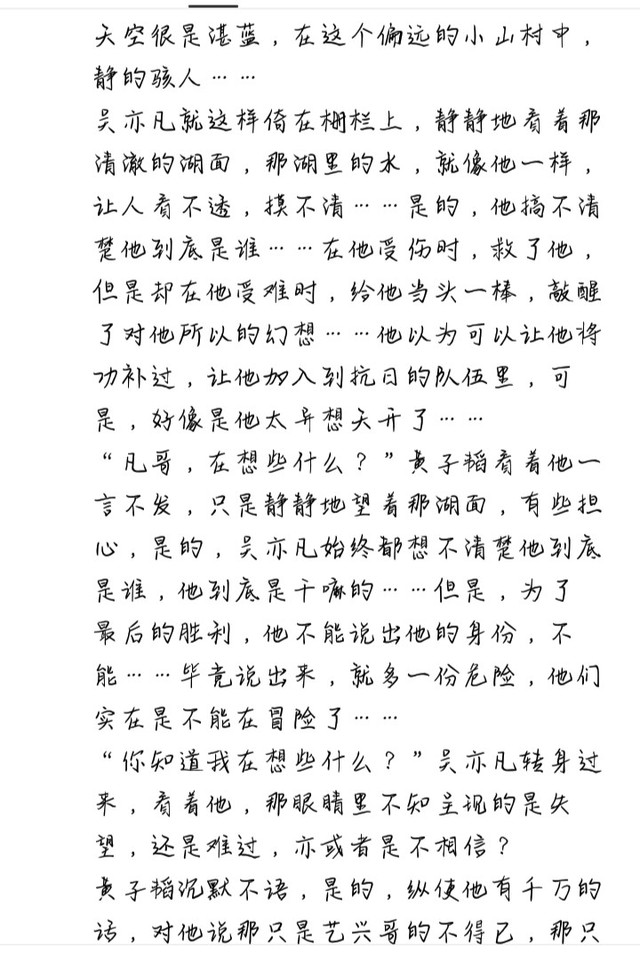 天空很是湛蓝，在这个偏远的小山村中，
静的骇人……
吴亦凡就这样倚在栅栏上，静静地看着那
清澈的湖面，那湖里的水，就像他一样，
让人看不透，摸不清……是的，他搞不清
楚他到底是谁……在他受伤时，救了他，
但是却在他受难时，给他当头一棒，敲醒
了对他所以的幻想……他以为可以让他将
功补过，让他加入到抗日的队伍里，可
是，好像是他太异想天开了……
“凡哥，在想些什么？”黄子韬看着他一
言不发，只是静静地望着那湖面，有些担
心，是的，吴亦凡始终都想不清楚他到底
是谁，他到底是干嘛的……但是，为了
最后的胜利，他不能说出他的身份，不
能……毕竟说出来，就多一份危险，他们
实在是不能在冒险了……
“你知道我在想些什么？”吴亦凡转身过
来，看着他，那眼睛里不知呈现的是失
望，还是难过，亦或者是不相信？
黄子韬沉默不语，是的，纵使他有千万的
话，对他说那只是艺兴哥的不得已，那只